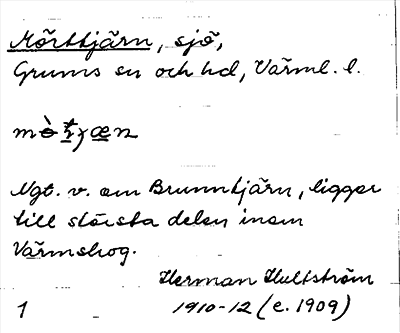 Mörttjärn, sjö,
Grums sn och hd, Värml. l.
Ngt. v. om Brunntjärn, ligger
till största delen inom
Värmskog.
Herman Hultström
1910-12 (c. 1909)
1